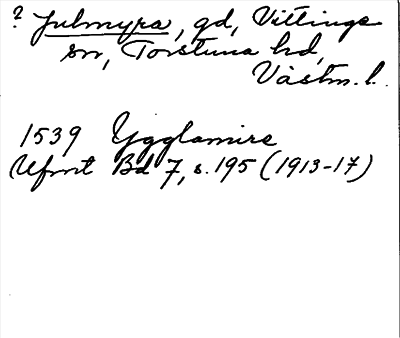 ? Julmyra, gd, Vittinge
sn, Torstuna hd,
Västm. l.
1539 Ygglamire
Ufmt Bd 7, s. 195 (1913-17)